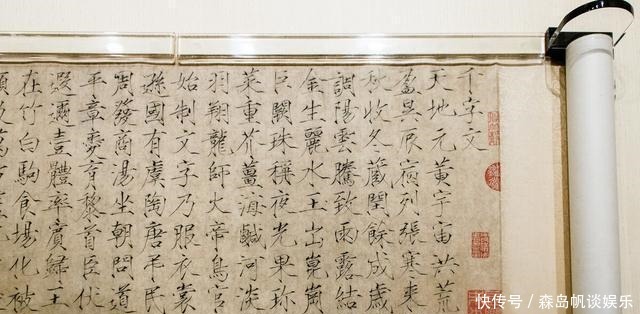 千字文
天地元黃宇宙洪荒
盈昃辰宿列張寒来
秋收冬藏閏餘成歲
調陽雲騰致雨露結
金生麗水玉出崑崗
巨闕珠稱夜光果珎
菜重芥薑海鹹河淡
羽翔龍師火帝鳥官
始制文字乃服衣裳
遜國有虞陶唐弔民
周發商湯坐朝問道
平章愛育黎首臣伏
遐邇壹體率賓歸王
在竹白駒食場化被
快传号 / 森岛帆谈娱乐